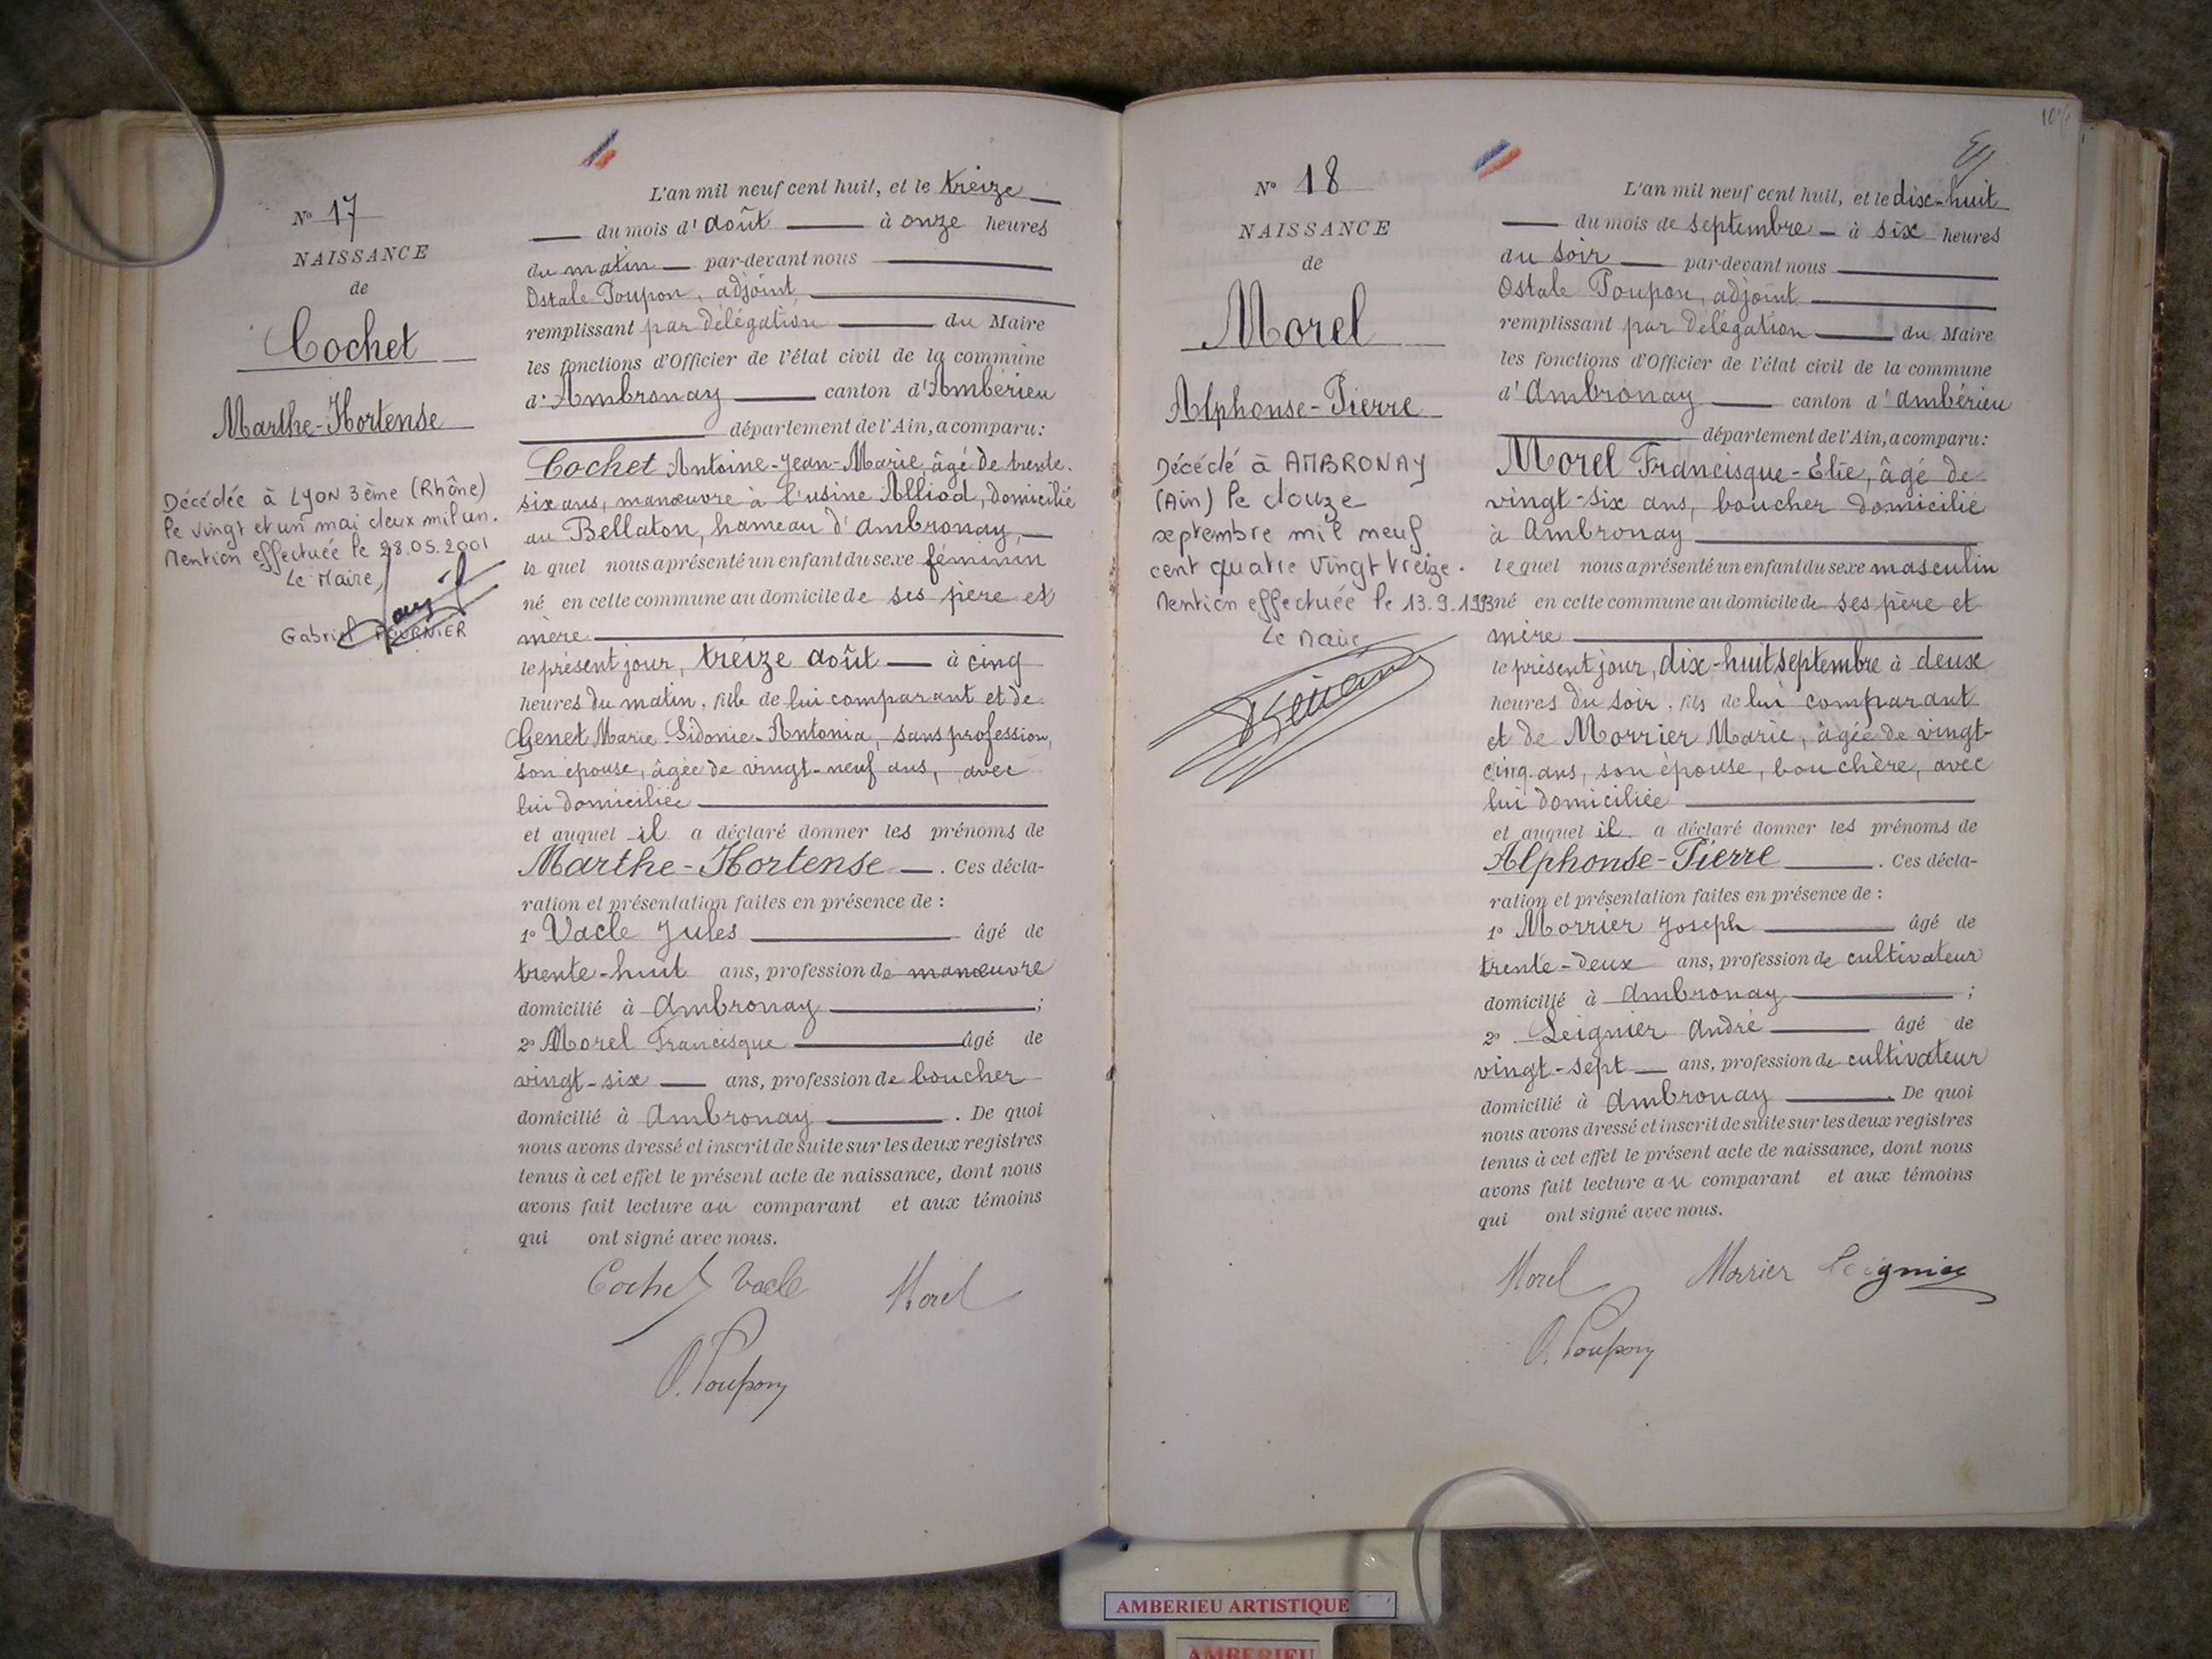 N° 17
NAISSANCE
de
Cochet
Marthe-Hortense
Décédée à LYON 3ème (Rhône)
le vingt et un mai deux mil un.
Mention effectuée le 28.05.2001
Le Maire,
Gabriel FOURNIER
L'an mil neuf cent huit, et le treize
du mois d'août à onze heures
du matin par-devant nous
Ostale Poupon, adjoint
remplissant par délégation du Maire
les fonctions d'Officier de l'état civil de la commune
d'Ambronay canton d'Ambérieu
département de l'Ain, a comparu:
Cochet Antoine-Jean-Marie, âgé de trente-
six ans, manœuvre à l'usine Alliod, domicilié
au Bellaton, hameau d'Ambronay,
le quel nous a présenté un enfant du sexe féminin
né en cette commune au domicile de ses père et
mère
le présent jour, treize août à cinq
heures du matin, fille de lui comparant et de
Genet Marie-Sidonie-Antonia, sans profession,
son épouse, âgée de vingt-neuf ans, avec
lui domiciliée
et auquel il a déclaré donner les prénoms de
Marthe-Hortense. Ces décla-
ration et présentation faites en présence de :
1° Vacle Jules âgé de
trente-huit ans, profession de manœuvre
domicilié à Ambronay ;
2° Morel Francisque âgé de
vingt-six ans, profession de boucher
domicilié à Ambronay. De quoi
nous avons dressé et inscrit de suite sur les deux registres
tenus à cet effet le présent acte de naissance, dont nous
avons fait lecture au comparant et aux témoins
qui ont signé avec nous.
Cochet Vacle Morel
O. Poupon
N° 18
NAISSANCE
de
Morel
Alphonse-Pierre
Décédé à AMBRONAY
(Ain) le douze
septembre mil neuf
cent quatre vingt treize.
Mention effectuée le 13.9.1993
Le Maire
L'an mil neuf cent huit, et le dix-huit
du mois de septembre à six heures
du soir par-devant nous
Ostale Poupon, adjoint
remplissant par délégation du Maire
les fonctions d'Officier de l'état civil de la commune
d'Ambronay canton d'Ambérieu
département de l'Ain, a comparu:
Morel Francisque-Elie, âgé de
vingt-six ans, boucher domicilié
à Ambronay
lequel nous a présenté un enfant du sexe masculin
né en cette commune au domicile de ses père et
mère
le présent jour, dix-huit septembre à deux
heures du soir, fils de lui comparant
et de Morrier Marie, âgée de vingt-
cinq ans, son épouse, bouchère, avec
lui domiciliée
et auquel il a déclaré donner les prénoms de
Alphonse-Pierre. Ces décla-
ration et présentation faites en présence de :
1° Morrier Joseph âgé de
trente-deux ans, profession de cultivateur
domicilié à Ambronay ;
2° Seignier André âgé de
vingt-sept ans, profession de cultivateur
domicilié à Ambronay. De quoi
nous avons dressé et inscrit de suite sur les deux registres
tenus à cet effet le présent acte de naissance, dont nous
avons fait lecture au comparant et aux témoins
qui ont signé avec nous.
Morel Morrier Seignier
O. Poupon
AMBERIEU ARTISTIQUE
AMBERIEU